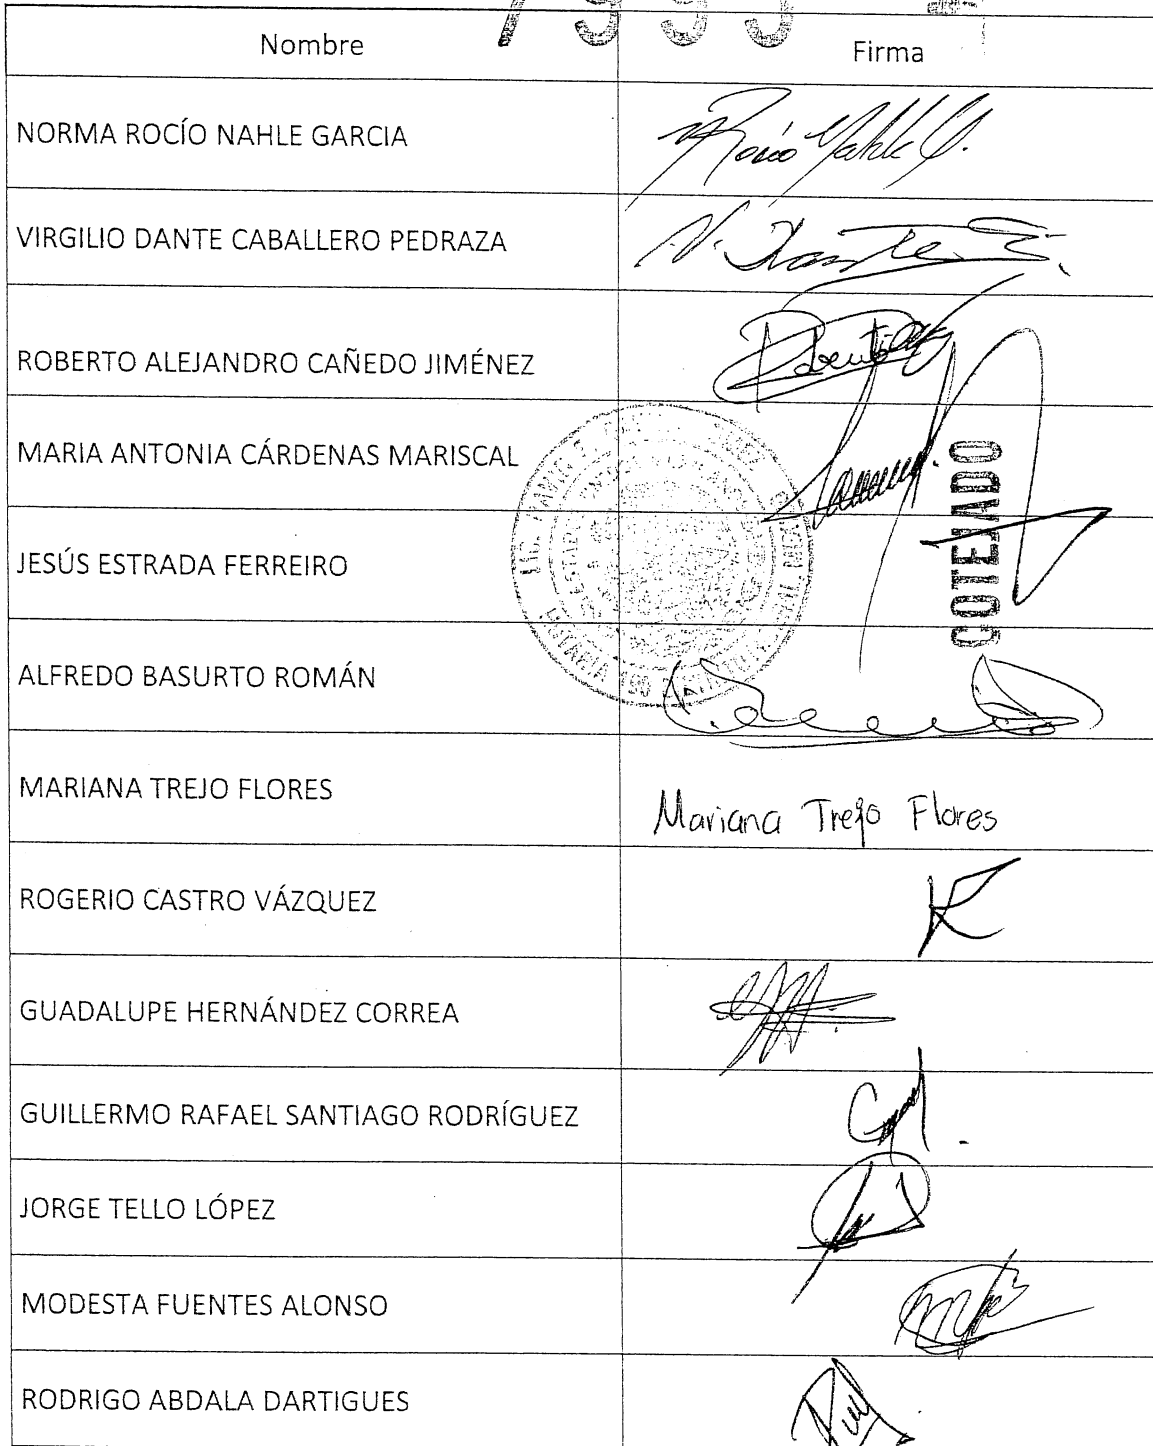 Nombre Firma
NORMA ROCÍO NAHLE GARCIA Rocío Nahle G.
VIRGILIO DANTE CABALLERO PEDRAZA V. Dante C.
ROBERTO ALEJANDRO CAÑEDO JIMÉNEZ
MARIA ANTONIA CÁRDENAS MARISCAL
COTEJADO
JESÚS ESTRADA FERREIRO
ALFREDO BASURTO ROMÁN
MARIANA TREJO FLORES Mariana Trejo Flores
ROGERIO CASTRO VÁZQUEZ
GUADALUPE HERNÁNDEZ CORREA
GUILLERMO RAFAEL SANTIAGO RODRÍGUEZ
JORGE TELLO LÓPEZ
MODESTA FUENTES ALONSO
RODRIGO ABDALA DARTIGUES